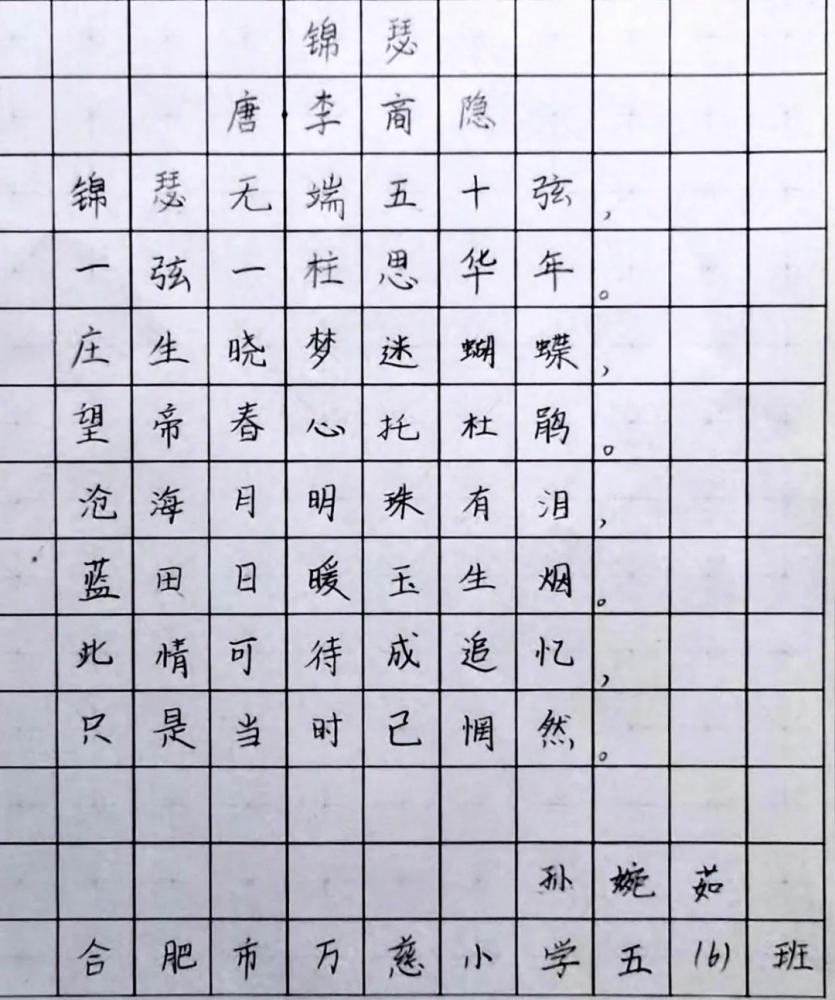 锦瑟
唐·李商隐
锦瑟无端五十弦，
一弦一柱思华年。
庄生晓梦迷蝴蝶，
望帝春心托杜鹃。
沧海月明珠有泪，
蓝田日暖玉生烟。
此情可待成追忆，
只是当时已惘然。
孙婉茹
合肥市万慈小学五(6)班